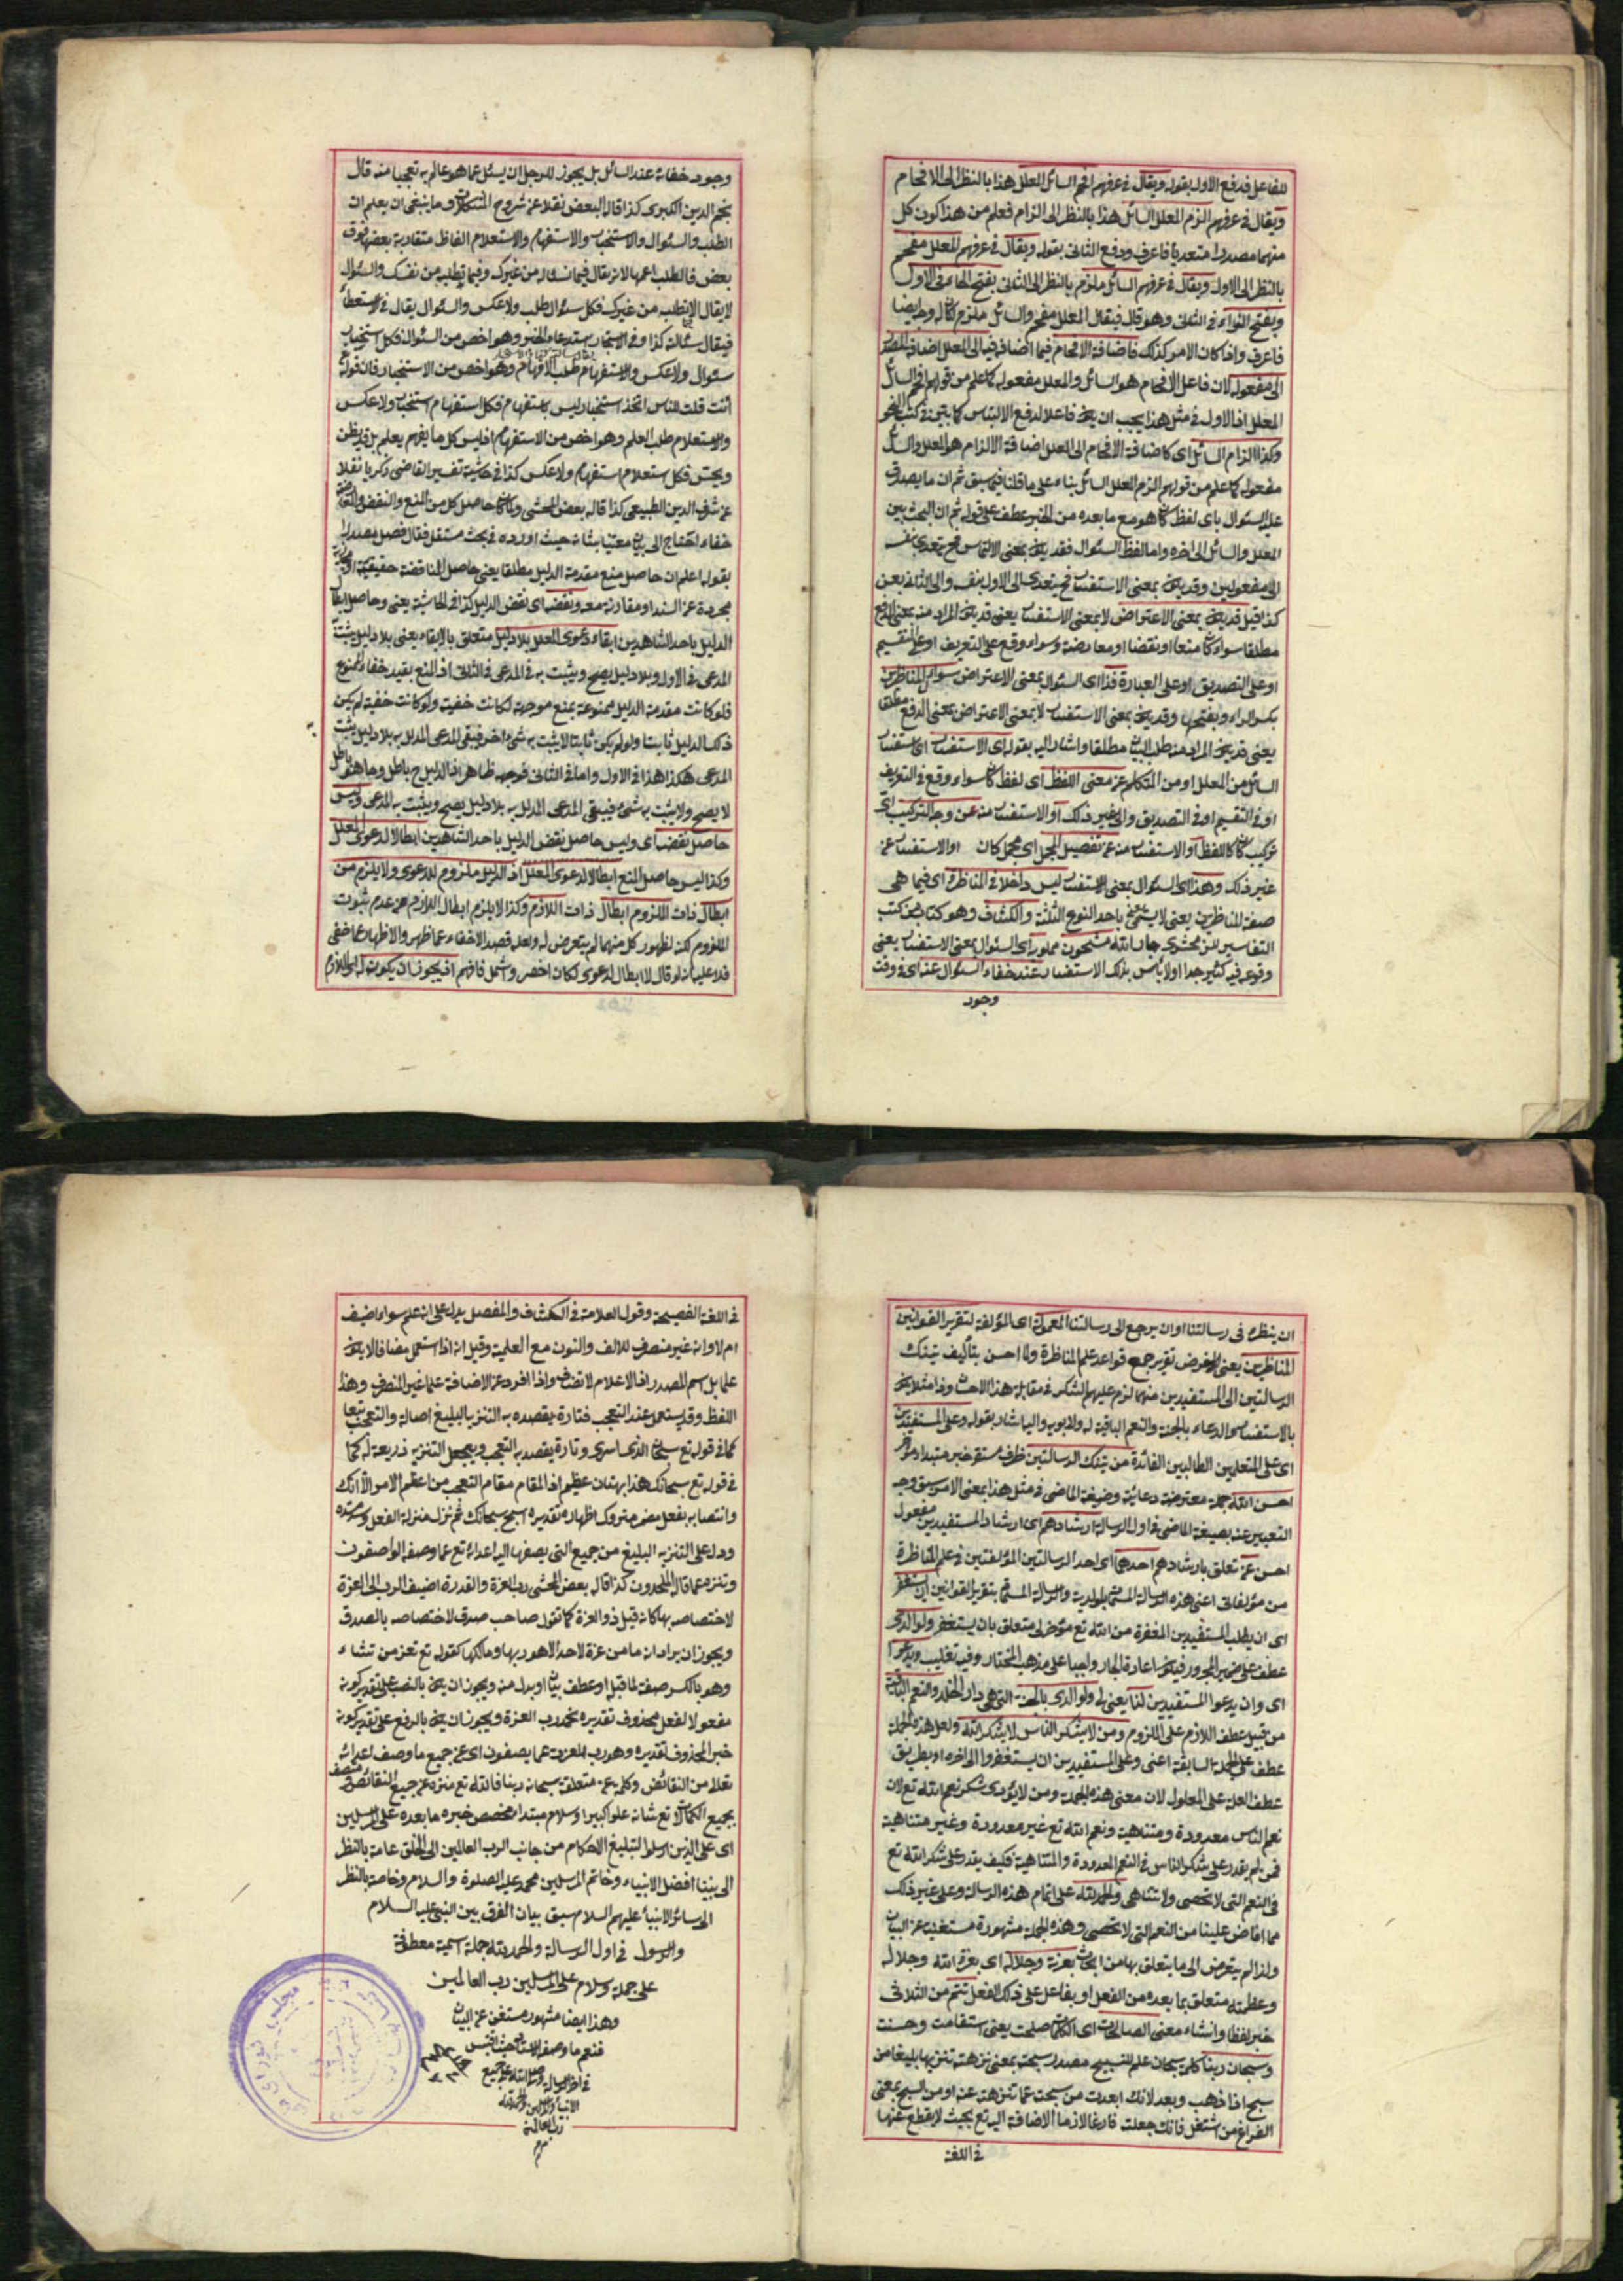 للفاعل فدفع الاول بقوله ويقال في عرفهم افحم السائل المعلل هذا بالنظر الى الافحام
ويقال في عرفهم الزم المعلل السائل هذا بالنظر الى الزام فعلم من هذا كون كل
منهما مصدرا متعديا فاعرف ودفع الثانى بقوله ويقال في عرفهم المعلل مفحم
بالنظر الى الاول ويقال في عرفهم السائل ملزم بالنظر الى الثانى بفتح الحاء في الاول
وبفتح الزاء في الثانى وهو قال فيقال المعلل مفحم والسائل ملزم
فاعرف واذا كان الامر كذلك فاضافة الافحام فيما اضافه فيها الى المعلل اضافة المصدر
الى مفعوله لان فاعل الافحام هو السائل والمعلل مفعوله كما علم من قولهم افحم السائل
المعلل اذ الاول في مثل هذا يجب ان يكون فاعلا لدفع الالتباس كما بين في كتب النحو
وكذا الزام السائل اى كاضافة الافحام الى المعلل اضافة الالزام هو المعلل والسائل
مفعوله كما علم من قولهم الزم المعلل السائل بناء على ما قلنا فيما سبق ثم ان ما يصدق
عليه السئوال باى لفظ كان هو مع ما بعده من الخبر عطف على قوله ثم ان البحث بين
المعلل والسائل الى اخره واما لفظ السئوال فقد يكون بمعنى الالتماس فح يتعدى بنفسه
الى مفعولين وقد يكون بمعنى الاستفسار فح يتعدى الى الاول بنفسه والى الثانى بعن
كذا قيل قد يكون بمعنى الاعتراض لا بمعنى الاستفسار يعنى قد يكون المراد منه بمعنى الدفع
مطلقا سواء كان منعا او نقضا او معارضة وسواء وقع على التعريف او على التقسيم
او على التصديق او على العبارة فذا اى السئوال بمعنى الاعتراض سؤال المناظرين
بكسر الراء وبفتحها وقد يكون بمعنى الاستفسار لا بمعنى الاعتراض بمعنى الدفع مطلقا
يعنى قد يكون المراد منه طلب البيان مطلقا واشار اليه بقوله اى الاستفسار اى استفسار
السائل من المعلل او من المتكلم عن معنى اللفظ اى لفظ كان سواء وقع في التعريف
او في التقسيم او في التصديق والى غير ذلك او الاستفسار منه عن وجه التركيب اى
تركيب كان كاللفظ او الاستفسار منه عن تفصيل المجمل اى مجمل كان او الاستفسار عن
غير ذلك وهذا اى السئوال بمعنى الاستفسار ليس داخلا في المناظرة اى فيما هى
صفة المناظرين يعنى لا يسمى باحد النوع الثلثة والكشاف وهو كتاب من كتب
التفاسير للزمخشرى جار الله مشحون مملو به اى السئوال بمعنى الاستفسار يعنى
وقوعه فيه كثير جدا اولا باس بذلك الاستفسار عند خفاء السئوال عنه اى في وقت
وجود
وجود خفائه عند السائل بل يجوز للرجل ان يسئل عما هو عالم به تعجبا منه قال
نجم الدين الكبرى كذا قال البعض نقلا عن شروح وما ينبغى ان يعلم ان
الطلب والسئوال والاستخبار والاستفهام والاستعلام الفاظ متقاربة بعضها فوق
بعض فالطلب اعمها لانه يقال فيما تسئاله من غيرك وفيما تطلبه من نفسك والسئوال
لا يقال الا يطلب من غيرك فكل سئوال طلب ولا عكس والسئوال يقال في الاستعطاء
فيقال سئالته كذا وفي الاستخبار استدعاء الخبر وهو اخص من السئوال فكل استخبار
سئوال ولا عكس والاستفهام طلب الافهام وهو اخص من الاستخبار فان قوله
أنت قلت للناس اتخذ استخبار ليس باستفهام فكل استفهام استخبار ولا عكس
والاستعلام طلب العلم وهو اخص من الاستفهام اذ ليس كل ما يفهم يعلم بل قد يظن
ويخمن فكل استعلام استفهام ولا عكس كذا في حاشية تفسير القاضى زكريا نقلا
عن شرف الدين الطيبعى كذا قاله بعض المحشى ولما كان حاصل كل من المنع والنقض والمعارضة
خفاء احتاج الى بيان معتنيا بشانه حيث اورده في بحث مستقل فقال فصل مصدرا
بقوله اعلم ان حاصل منع مقدمة الدليل مطلقا يعنى حاصل المناقضة حقيقية او مجازية
مجردة عن السند او مقارنة معه ونقضه اى نقض الدليل كذا في الحاشية يعنى وحاصل ابطال
الدليل باحد الشاهدين ابقاء دعوى المعلل بلا دليل متعلق بالابقاء يعنى بلا دليل يثبت
المدعى في الاول وبلا دليل يصح ويثبت به في المدعى في الثانى اذ المنع يفيد خفاء الممنوع
فلو كانت مقدمة الدليل ممنوعة بمنع موجهة لكانت خفية ولو كانت خفية لم يكن
ذلك الدليل ثابتا ولو لم يكن ثابتا لا يثبت به شئ اخر فبقى المدعى المدلل به بلا دليل يثبت
المدعى هكذا هذا في الاول واما في الثانى فوجهه ظاهر اذ الدليل ح باطل وما هو باطل
لا يصح ولا يثبت به شئ فيبقى المدعى المدلل به بلا دليل يصح ويثبت به المدعى وليس
حاصل نقضه اى وليس حاصل نقض الدليل باحد الشاهدين ابطالا لدعوى المعلل
وكذا ليس حاصل المنع ابطالا لدعوى المعلل اذ الدليل ملزوم للدعوى ولا يلزم من
ابطال ذات الملزوم ابطال ذات اللازم وكذا لا يلزم ابطال اللازم من عدم ثبوت
الملزوم لكنه لظهور كل منهما لم يتعرض له ولعله قصد الاخفاء عما ظهر والاظهار عما خفى
فلا عليه انه لو قال لا ابطال لدعوى لكان اخصر واشمل فافهم اذ يجوز ان يكون
ان ينظره في رسالتنا او ان يرجع الى رسالتنا المعمولة اى المؤلفة لتقرير القوانين
المناظرين يعنى لغرض تقرير جمع قواعد علم المناظرة ولما احسن بتأليف تينك
الرسالتين الى المستفيدين منهما لزم عليهم الشكر في مقابلة هذا الاحسان وذا مثلا يكون
بالاستغفار والدعاء بالجنة والنعم الباقية له ولابويه واليها اشار بقوله وعلى المستفيدين
اى على المتعلمين الطالبين الفائدة من تينك الرسالتين ظرف مستقر خبر مبتداء مؤخر
احسن الله جملة معترضة دعائية وصيغة الماضى في مثل هذا بمعنى الامر سبق وجه
التعبير عنه بصيغة الماضى في اول الرسالة ارشادهم اى ارشاد المستفيدين مفعول
احسن عن تعلق بارشادهم احدهما اى احد الرسالتين المؤلفتين في علم المناظرة
من مؤلفاتى اعنى هذه الرسالة المسماة بالولدية والرسالة المسماة بتقرير القوانين ان يستغفر
اى ان يطلب المستفيدين المغفرة من الله تع متعلق بان يستغفر ولوالدى
عطف على ضمير المجرور فيكون اعادة الجار واجبا على مذهب المختار وفيه تغليب ويدعوا
اى وان يدعوا المستفيدين لنا يعنى لى ولوالدى بالجنة التى هى دار الخلد والنعم الباقية
من قبيل عطف اللازم على الملزوم ومن لا يشكر الناس لا يشكر الله ولعل هذه الجملة
عطف على الجملة السابقة اعنى وعلى المستفيدين ان يستغفروا الى اخره او بطريق
عطف العلة على المعلول لان معنى هذه الجملة ومن لا يؤدى شكر نعم الله تع لان
نعم الناس معدودة ومتناهية ونعم الله تع غير معدودة وغير متناهية
فمن لم يقدر على شكر الناس في النعم المعدودة والمتناهية فكيف يقدر على شكر الله تع
في النعم التى لا تحصى ولا تتناهى والحمد لله على اتمام هذه الرسالة وعلى غير ذلك
مما افاض علينا من النعم التى لا تحصى وهذه الجملة مشهورة مستغنية عن البيان
ولذا لم يتعرض الى ما يتعلق بها من ابحاث بعزته وجلاله اى بعزة الله وجلاله
وعظمته متعلق بما بعده من الفعل او بفاعل على ذلك الفعل تتم من الثلاثى
خبر لفظا وانشاء معنى الصالحات اى الكلمات صلحت يعنى استقامت وحسنت
وسبحان ربنا كلمة سبحان علم للتسبيح مصدر سبحته بمعنى نزهته تنزيها بليغا من
سبح اذا ذهب وبعد لانك ابعدت من سبحت عما تنزهته عنه او من السبح بمعنى
الفراغ من اشتغل فانك جعلت فارغا لازما الاضافة اليه تع بحيث لا يقطع عنها
في اللغة
في اللغة الفصيحة وقول العلامة في الكشاف والمفصل يدل على انه علم سواء اضيف
ام لا وانه غير منصرف للالف والنون مع العلمية وقيل انه اذا استعمل مضافا لا يكون
علما بل اسم المصدر اذ الاعلام لا تضاف واذا افرد عن الاضافة علما غير المنصرف وهذا
اللفظ وقد يستعمل عند التعجب فتارة يقصد به التنزيه البليغ اصالة والتعجب تبعا
كما في قوله تع سبحان الذى اسرى وتارة يقصد به التعجب ويجعل التنزيه ذريعة له كما
في قوله تع سبحانك هذا بهتان عظيم اذ المقام مقام التعجب من اعظم الامر لا انك
وانتصابه بفعل مضمر متروك اظهاره تقديره اسبح سبحانك ثم نزل منزلة الفعل وسد مسده
ودل على التنزيه البليغ من جميع التى يصفها اليه اعداء تع عما وصفه الواصفون
وتنزه عما قاله الملحدون كذا قاله بعض المحشى رب العزة والقدرة اضيف الرب الى العزة
لاختصاصه بها كانه قيل ذو العزة كما تقول صاحب صدق لاختصاصه بالصدق
ويجوز ان يراد انه ما من عزة لاحد الا هو ربها ومالكها كقوله تع تعز من تشاء
وهو بالكسر صفة لما قبله او عطف بيان او بدل منه ويجوز ان يكون بالنصب على تقدير كونه
مفعولا لفعل محذوف تقديره نحمد رب العزة ويجوز ان يكون بالرفع على تقدير كونه
خبر المحذوف تقديره وهو رب العزة عما يصفون اى عن جميع ما وصف اعدائه
تعالى من النقائض وكلمة عن متعلقة بسبحانه ربنا فالله تع منزه عن جميع النقائص ومتصف
بجميع الكمالات تع شانه علوا كبيرا وسلام مبتداء مخصص خبره ما بعده على المرسلين
اى على الذين ارسلوا لتبليغ الاحكام من جانب الرب العالمين الى الخلق عامة بالنظر
الى نبينا افضل الانبياء وخاتم المرسلين محمد عليه الصلوة والسلام وخاصة بالنظر
الى سائر الانبياء عليهم السلام سبق بيان الفرق بين النبى عليه السلام
والرسول في اول الرسالة والحمد لله جملة اسمية معطوفة
على جملة وسلام على المرسلين رب العالمين
وهذا ايضا مشهور مستغن عن البيان
فنعم ما وصفه الاستاد حيث اقتبس
في اخر الرسالة وصلى الله على جميع
الانبياء والمرسلين والحمد لله
رب العالمين
م م